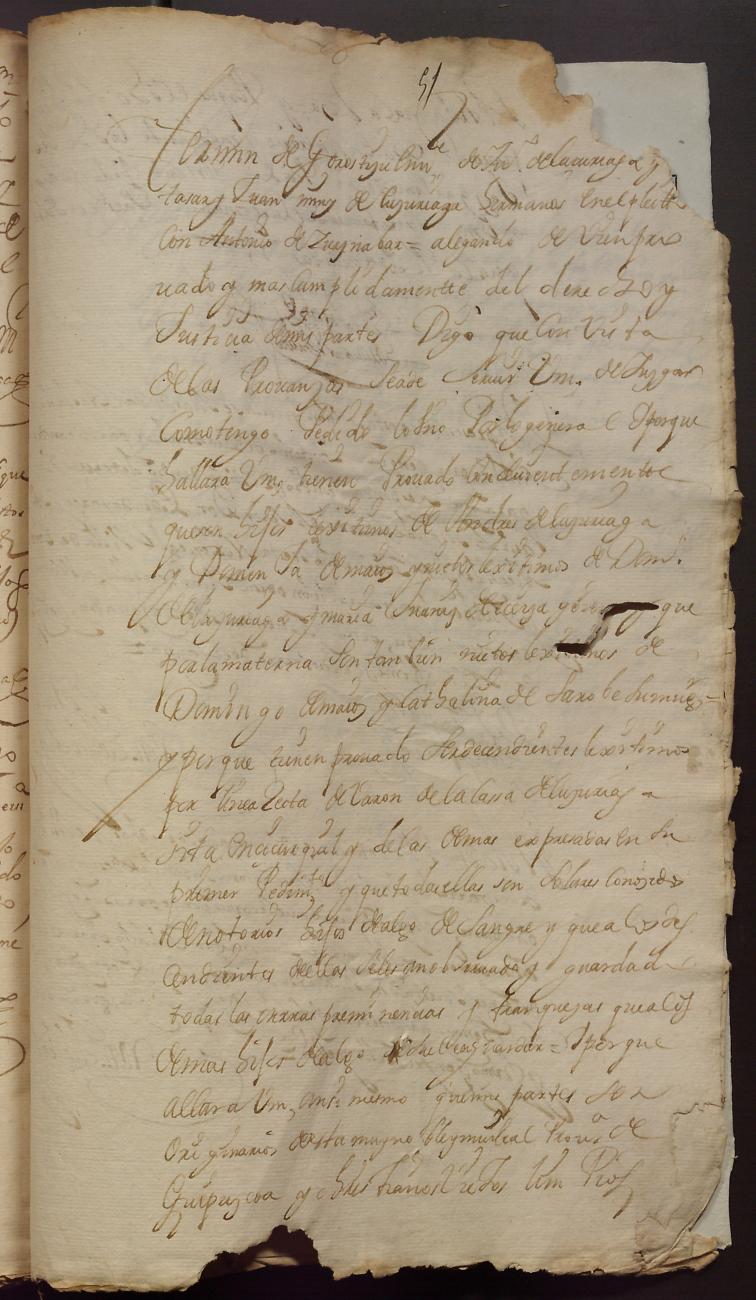 51
fermin de Gorostycu en n.e de Ju.o de lucuriaga y
y Juan mnz de luzuriaga hermanos en el pleito
Con Antonio de Zuaznabar = alegando de vien pro
uado y mas Cumplidamentte del derecho y
Justicia de mis partes Digo que Con Vista
de las Prouanzas Seade Seruir Vm. de Juzgar
Como tengo Pedido lo Uno Por lo general e Yporque
hallara Vm, tienen Prouado Concluyent emente
queson hijos lexitimos de Andres de luzuriaga
y Domen ja de y nietos lexitimos de Dom.o
de luzuriaga y maria y que
por la materna Son tanbien nietos lexitimos de
Domingo de y Cathalina de =
y porque tienen prouado Ser decendientes lexitimos
por linea Recta de Varon de la Cassa de luzuriaga
sita en y de las demas expresadas en Su
primer Pedim.to y que todas ellas son Solares Conozidos
de notorios hijos dealgo de Sangre y que a los des
cendientes de ellas Seles an obseruado y guardad
todas las onrras preminencias y franquezas que alos
demas hijos dealgo Seles deuen guardar = Yporque
allara Vm, ansi mesmo que mis partes Son
Originarios desta muy noble y muy leal Prou.a de
Guipuzcoa y christianos Viejos Lim Pios